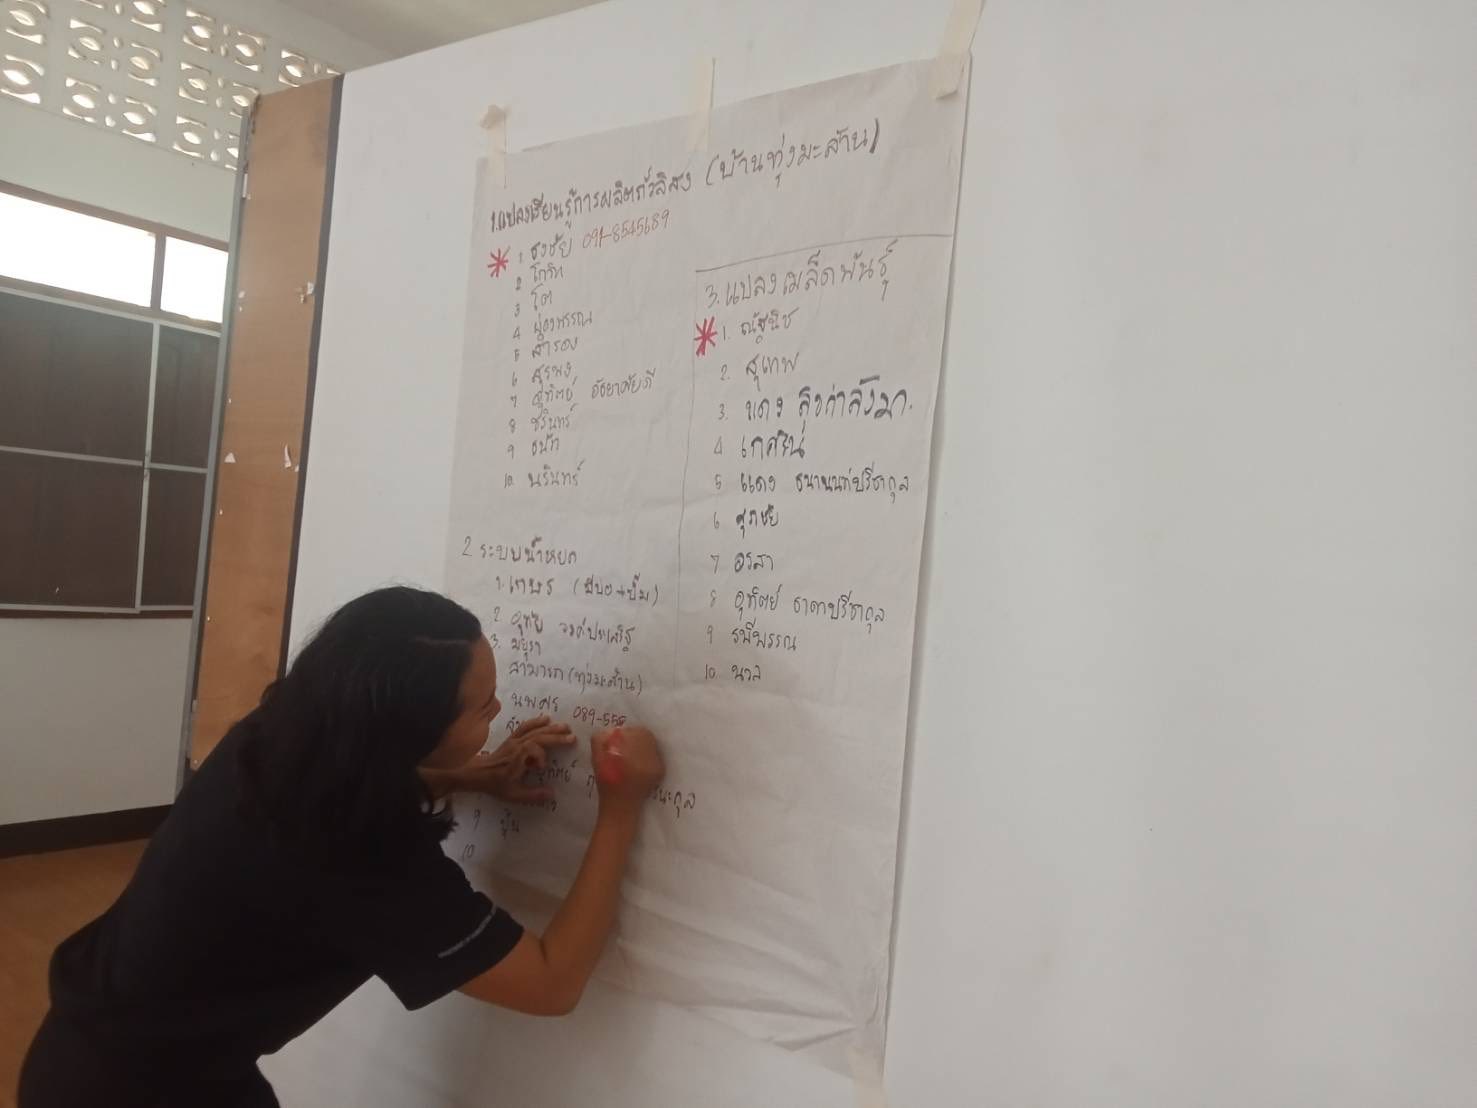 1.แปลงเรียนรู้การผลิตถั่วลิสง (บ้านทุ่งมะส้าน)
1 ธงชัย 091-8545689
2 โกวิท
3 โต
4 ผ่องพรรณ
5 สำรอง
6 สุรพง
7 อุทิตย์ อัธยาศัยดี
8 ชรินทร์
9 ธนัท
10 นรินทร์
2. ระบบน้ำหยด
1. เกษร (มีบ่อ+ปั๊ม)
2. อุทัย วงค์ประเสริฐ
3. มยุรา
สามารถ (ทุ่งมะส้าน)
นพพร 089-555
อุทิตย์
9
10
3. แปลงเมล็ดพันธุ์
1. ณัฐนิช
2. สุเทพ
3. แดง สุขกำลังมา.
4 เกศริน
5 แดง ธนานนท์ปรีชากุล
6 สุรชัย
7 อรสา
8 อุทิตย์ ธาดาปรีชากุล
9 รพีพรรณ
10 นวล